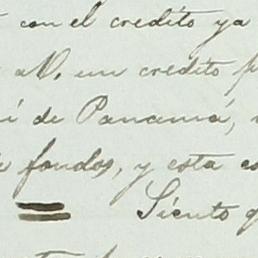 con el credito ya
a V. un credito
de Panamá,
fondos, y esta
Siento